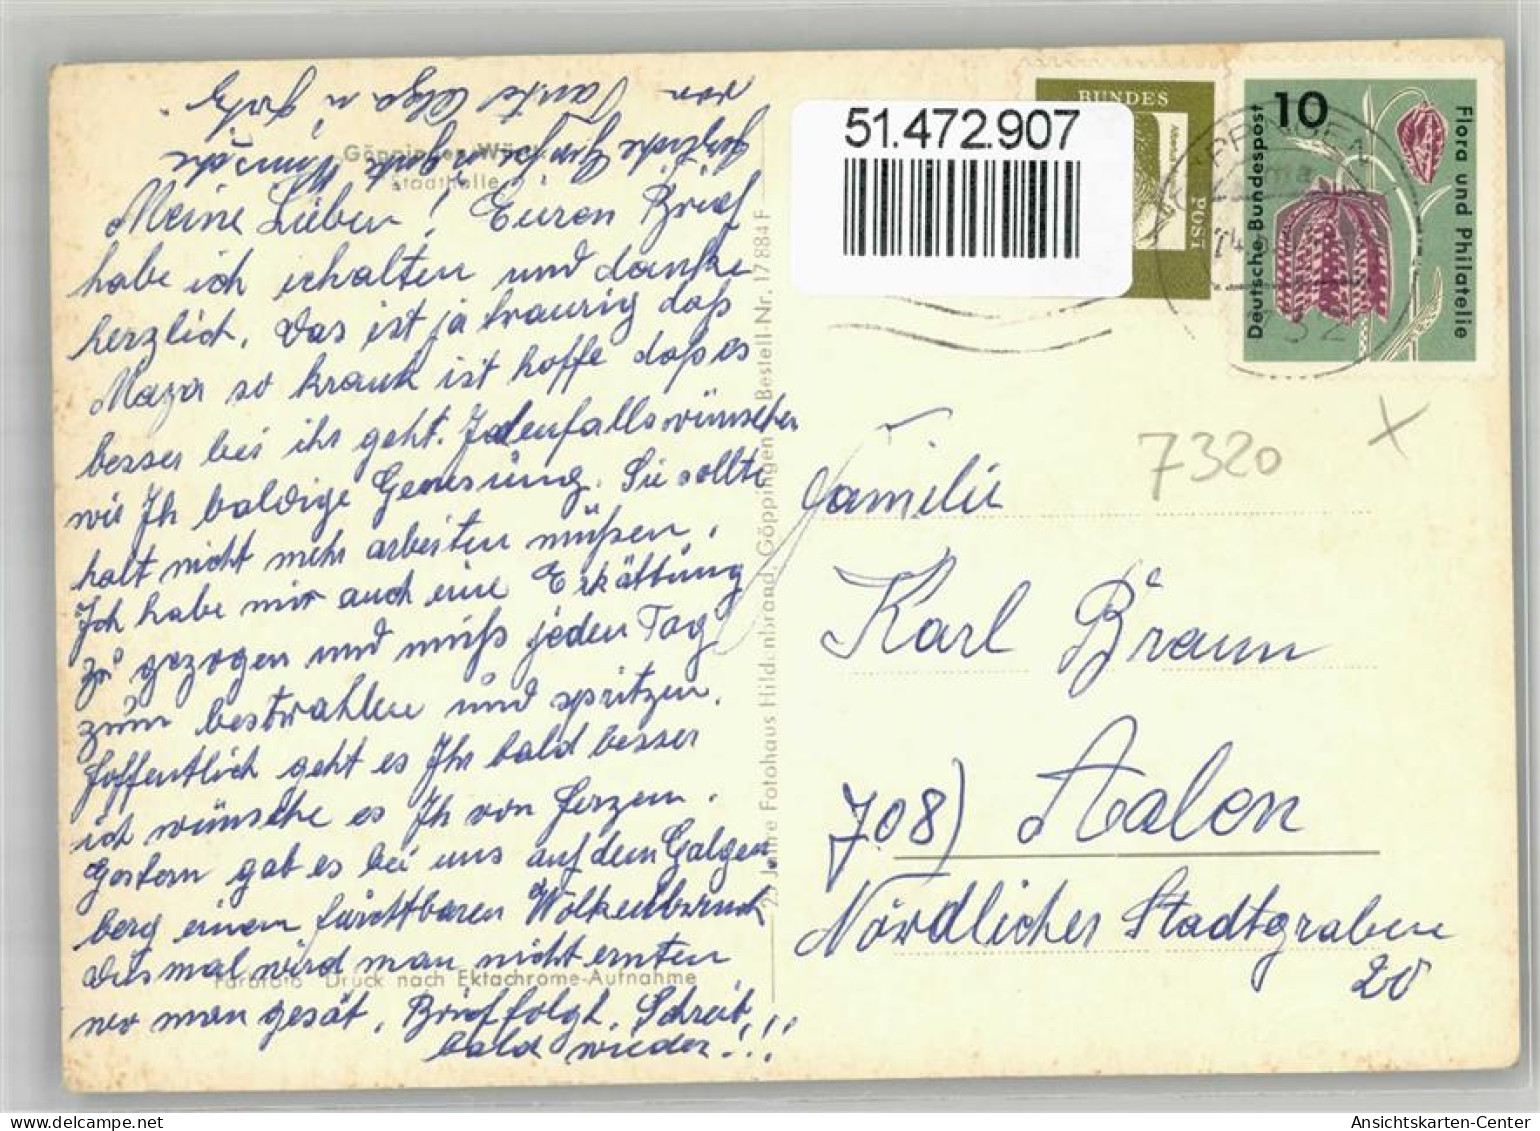 Göppingen Württ.
Stadthalle
Meine Lieben! Euren Brief
habe ich erhalten und danke
herzlich. Das ist ja traurig daß
Maza so krank ist hoffe daß es
besser bei ihr geht. Jedenfalls wünschen
wir Ih baldige Genesung. Sie sollte
halt nicht mehr arbeiten müßen.
Ich habe mir auch eine Erkältung
zu gezogen und muß jeden Tag
zum bestrahlen und spritzen.
Hoffentlich geht es Ihr bald besser
ich wünsche es Ih von Herzen.
Gestern gab es bei uns auf dem Galgen
berg einen furchtbaren Wolkenbruch
dismal wird man nicht ernten
was man gesät. Brief folgt. Schreib
bald wieder!!!
Herzliche Grüße
von Tante Olga
Farbfoto Druck nach Ektachrome-Aufnahme
25 Jahre Fotohaus Hildenbrand, Göppingen Bestell-Nr. 17 884 F
51.472.907
BUNDES
POST
10
Deutsche Bundespost
Flora und Philatelie
7320
Familie
Karl Braun
708) Aalen
Nördlicher Stadtgraben
20
oldthing.de
Ansichtskarten-Center